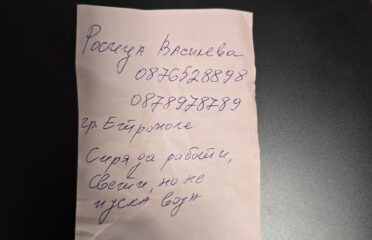 Росица Василева
0876528898
0878978789
гр. Етрополе
Спря да работи,
свети, но не
пуска вода